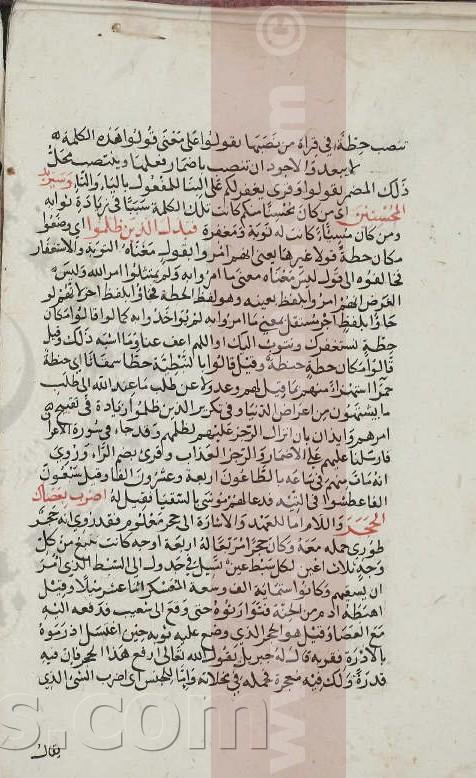 تنتصب حطة في قراءة من نصبها بقولوا على معنى قولوا هذه الكلمة
لا يبعد والاجود ان تنتصب باضمار فعلها وينتصب محل
ذلك المضمر بقولوا وقرئ يغفر لكم على البنا للمفعول باليا والتا وسنزيد
المحسنين اى من كان محسنا منكم كانت تلك الكلمة سببا في زيادة ثوابه
ومن كان مسيئا كانت له توبة ومغفرة فبدل الذين ظلموا اى وضعوا
مكان حطة قولا غيرها يعنى انهم امروا بقول معناه التوبة والاستغفار
فخالفوه الى قول ليس معناه معنى ما امروا به ولم يمتثلوا امر الله وليس
الغرض انهم امروا بلفظ بعينه وهو لفظ الحطة فجاوا بلفظ اخر لانهم لو
جاوا بلفظ اخر مستقل بمعنى ما امروا به لم يواخذوا به كما لو قالوا مكان
حطة نستغفرك ونتوب اليك او اللهم اعف عنا وما اشبه ذلك وقيل
قالوا مكان حطة حنطة وقيل قالوا بالنبطية حطا سمقاثا اى حنطة
حمرا استهزاء منهم بما قيل لهم وعدولا عن طلب ما عند الله الى طلب
ما يشتهون من اعراض الدنيا وفي تكرير الذين ظلموا زيادة في تقبيح
امرهم وايذان بان انزال الرجز عليهم لظلمهم وقد جاء في سورة الاعراف
فارسلنا عليهم على الاضمار والرجز العذاب وقرئ بضم الراء وروى
انه مات منهم في ساعة بالطاعون اربعة وعشرون الفا وقيل سبعون
الفا عطشوا في التيه فدعا لهم موسى بالسقيا فقيل له اضرب بعصاك
الحجر واللام اما للعهد والاشارة الى حجر معلوم فقد روى انه حجر
طورى حمله معه وكان حجرا مربعا له اربعة اوجه كانت تنبع من كل
وجه ثلاث اعين لكل سبط عين تسيل في جدول الى السبط الذى امر
ان يسقيهم وكانوا ستمائة الف وسعة المعسكر اثنا عشر ميلا وقيل
اهبطه ادم من الجنة فتوارثوه حتى وقع الى شعيب فدفعه اليه
مع العصا وقيل هو الحجر الذى وضع عليه ثوبه حين اغتسل اذ رموه
بالادرة ففر به قال له جبريل يقول الله تعالى ارفع هذا الحجر فان فيه
قدرة ولك فيه معجزة فحمله في مخلاته واما للجنس اى اضرب الشئ الذى
يقال
www
s.com
©